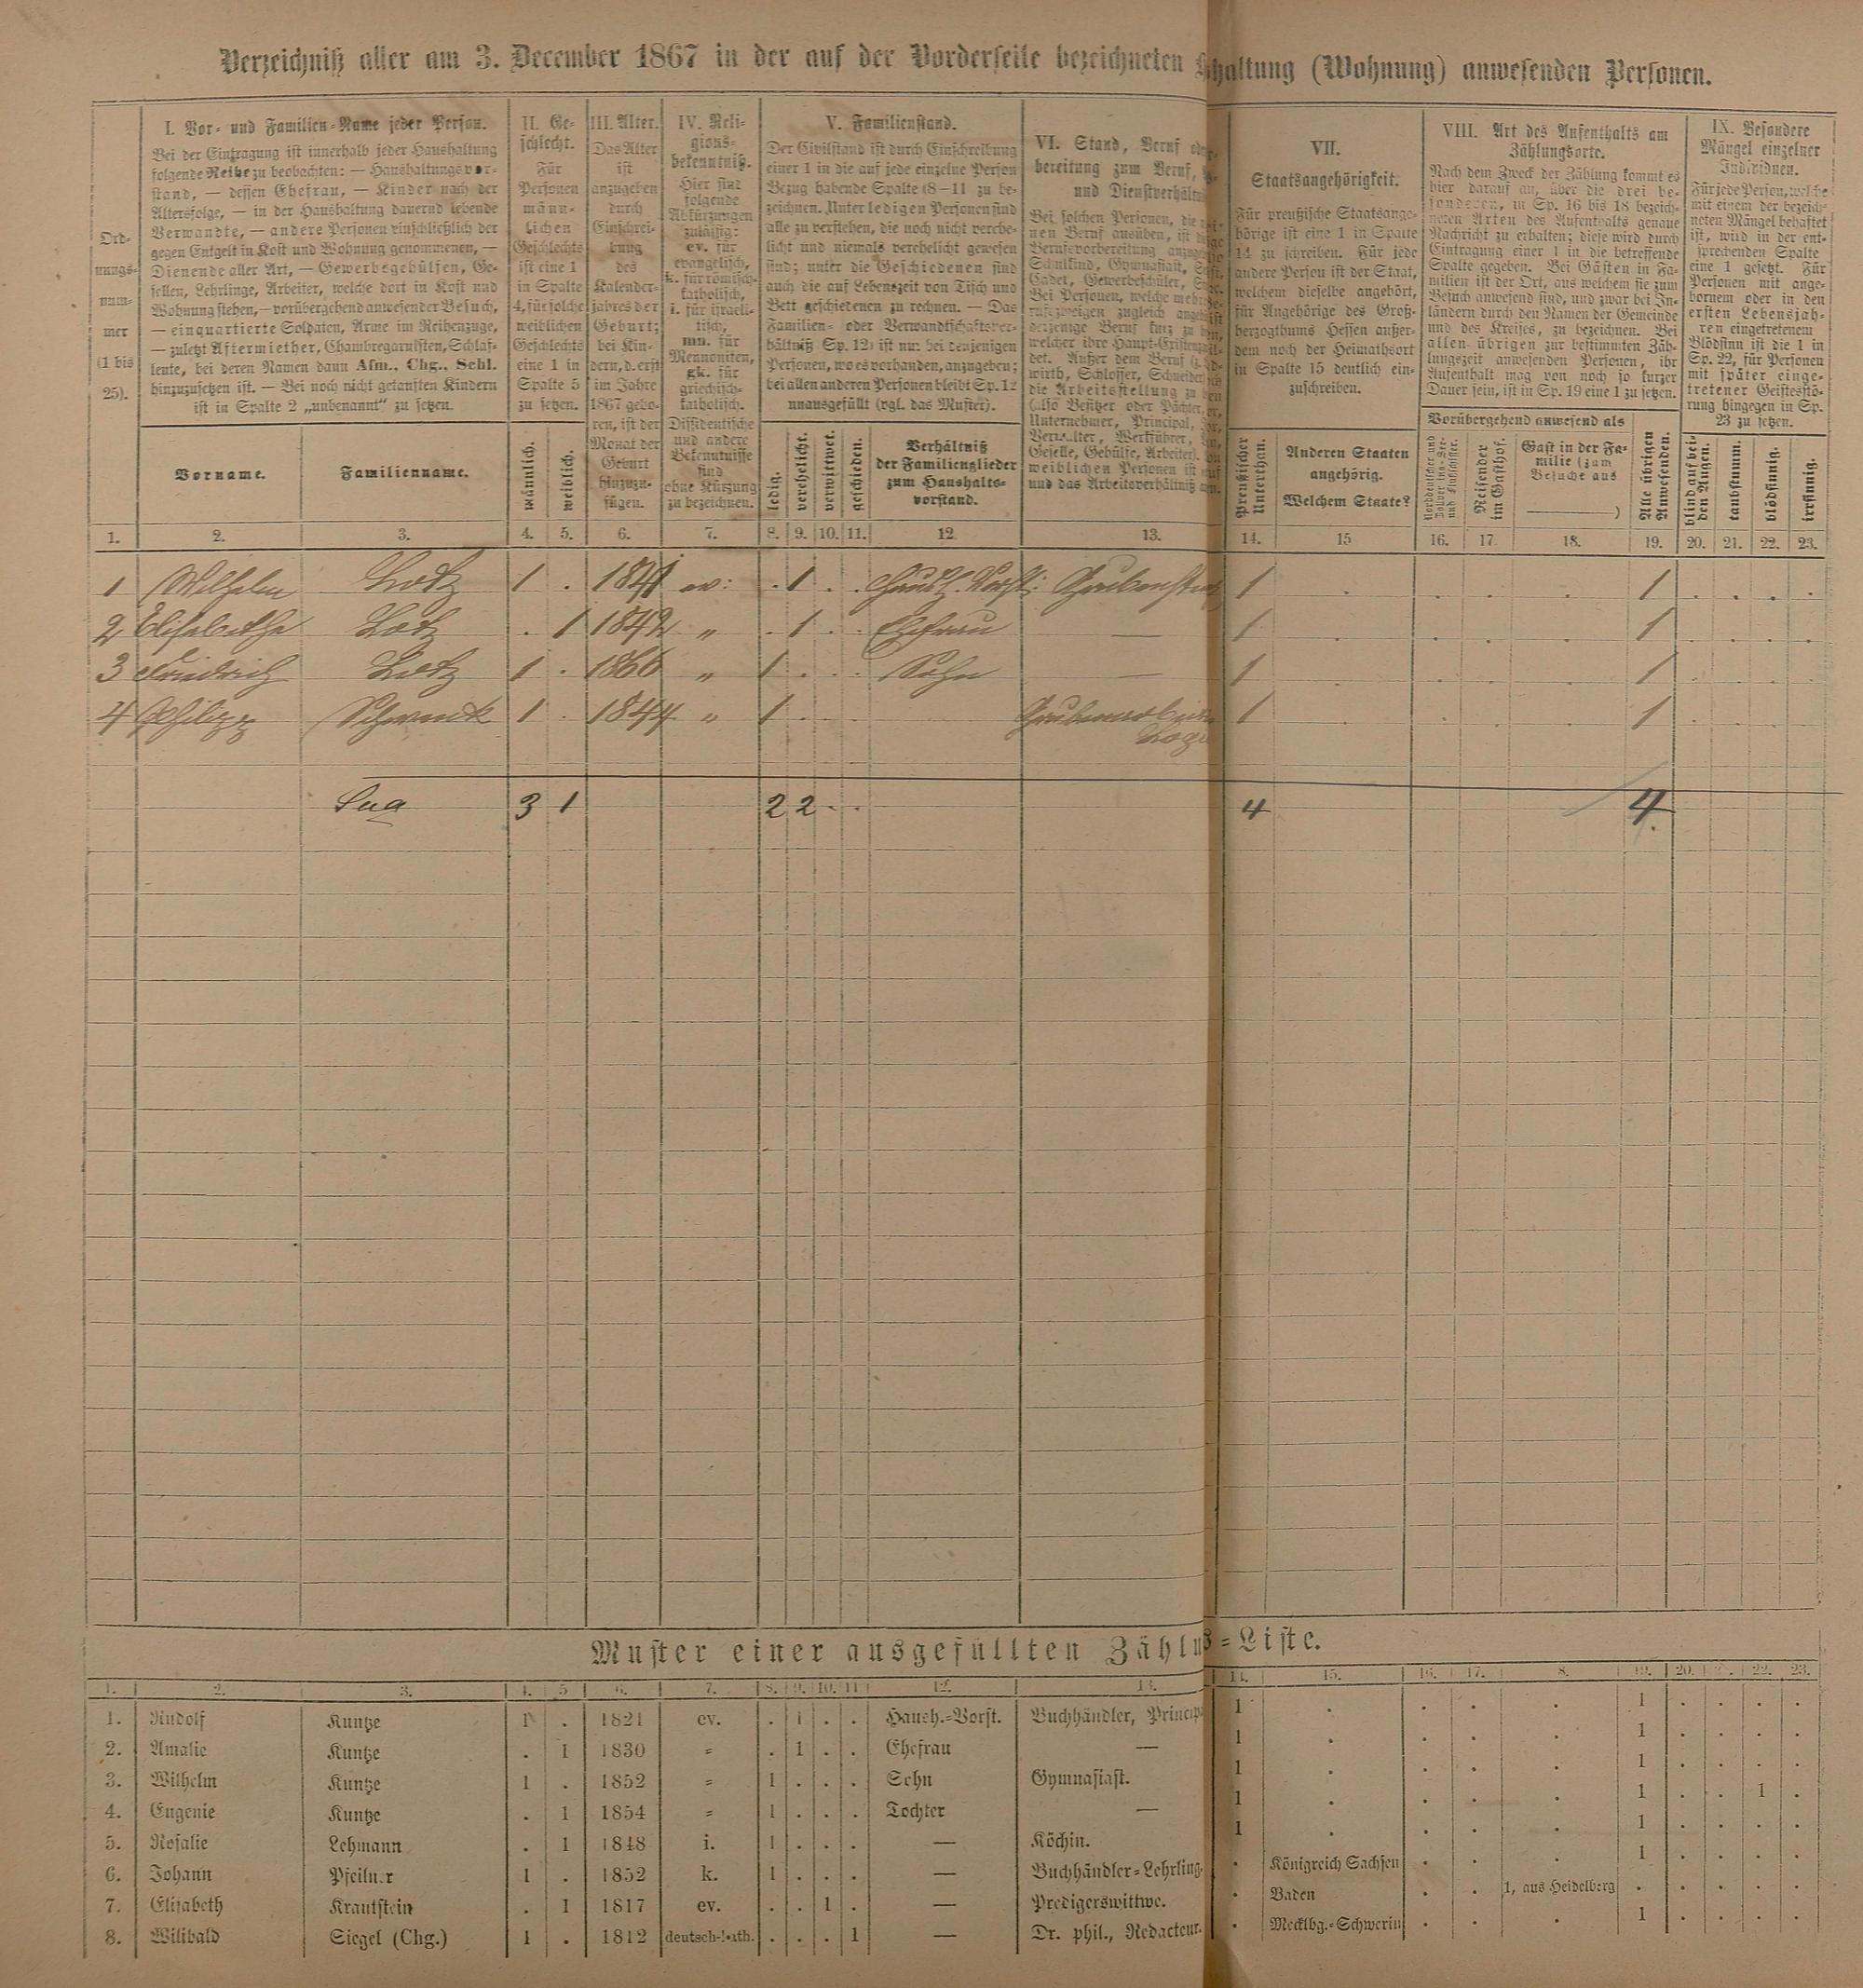 Verzeichniß aller am 3. December 1867 in der auf der Vorderseite bezeichneten haltung (Wohnung) anwesenden Personen.
Ord-
nungs-
num-
mer
(1 bis
25).
I. Vor- und Familien-Name jeder Person.
Bei der Eintragung ist innerhalb jeder Haushaltung
folgende Reihe zu beobachten: — Haushaltungsvor-
stand, — dessen Ehefrau, — Kinder nach der
Altersfolge, — in der Haushaltung dauernd lebende
Verwandte, — andere Personen einschließlich der
gegen Entgelt in Kost und Wohnung genommenen, —
Dienende aller Art, — Gewerbsgehülfen, Ge-
sellen, Lehrlinge, Arbeiter, welche dort in Kost und
Wohnung stehen, — vorübergehend anwesender Besuch,
— einquartierte Soldaten, Arme im Reihenzuge,
— zuletzt Aftermiether, Chambregarnisten, Schlaf-
leute, bei deren Namen dann Afm., Chg., Schl.
hinzuzusetzen ist. — Bei noch nicht getauften Kindern
ist in Spalte 2 „unbenannt“ zu setzen.
Vorname.
Familienname.
II. Ge-
schlecht.
Für
Personen
männ-
lichen
Geschlechts
ist eine 1
in Spalte
4, für solche
weiblichen
Geschlechts
eine 1 in
Spalte 5
zu setzen.
männlich.
weiblich.
III. Alter.
Das Alter
ist
anzugeben
durch
Einschrei-
bung
des
Kalender-
jahres der
Geburt;
bei Kin-
dern, d. erst
im Jahre
1867 gebo-
ren, ist der
Monat der
Geburt
hinzuzu-
fügen.
IV. Reli-
gions-
bekenntniß.
Hier sind
folgende
Abkürzungen
zulässig:
ev. für
evangelisch,
k. für römisch-
katholisch,
i. für israeli-
tisch,
mn. für
Mennoniten,
gk. für
griechisch-
katholisch.
Dissidentische
und andere
Bekenntnisse
sind
ohne Kürzung
zu bezeichnen.
V. Familienstand.
Der Civilstand ist durch Einschreibung
einer 1 in die auf jede einzelne Person
Bezug habende Spalte (8—11 zu be-
zeichnen. Unter ledigen Personen sind
alle zu verstehen, die noch nicht verehe-
licht und niemals verehelicht gewesen
sind; unter die Geschiedenen sind
auch die auf Lebenszeit von Tisch und
Bett geschiedenen zu rechnen. — Das
Familien- oder Verwandtschaftsver-
hältniß Sp. 12) ist nur bei denjenigen
Personen, wo es vorhanden, anzugeben;
bei allen anderen Personen bleibt Sp. 12
unausgefüllt (vgl. das Muster).
ledig.
verehelicht.
verwittwet.
geschieden.
Verhältniß
der Familienglieder
zum Haushalts-
vorstand.
VI. Stand, Beruf oder
bereitung zum Beruf,
und Dienstverhältn
Bei solchen Personen, die
nen Beruf ausüben, ist
Berufsvorbereitung
Schulkind, Gymnasiast,
Cadet, Gewerbeschüler,
Bei Personen, welche mehr
rufszweigen zugleich
derjenige Beruf kurz zu
welcher ihre Haupt-Existenz
det. Außer dem Beruf
wirth, Schlosser, Schneider
die Arbeitsstellung zu
(also Besitzer oder Pächter,
Unternehmer, Principal,
Verwalter, Werkführer,
Geselle, Gehülfe, Arbeiter).
weiblichen Personen ist
und das Arbeitsverhältniß
VII.
Staatsangehörigkeit.
Für preußische Staatsange-
hörige ist eine 1 in Spalte
14 zu schreiben. Für jede
andere Person ist der Staat,
welchem dieselbe angehört,
für Angehörige des Groß-
herzogthums Hessen außer-
dem noch der Heimathsort
in Spalte 15 deutlich ein-
zuschreiben.
Preußischer
Unterthan.
Anderen Staaten
angehörig.
Welchem Staate?
VIII. Art des Aufenthalts am
Zählungsorte.
Nach dem Zweck der Zählung kommt es
hier darauf an, über die drei be-
sonderen, in Sp. 16 bis 18 bezeich-
neten Arten des Aufenthalts genaue
Nachricht zu erhalten; diese wird durch
Eintragung einer 1 in die betreffende
Spalte gegeben. Bei Gästen in Fa-
milien ist der Ort, aus welchem sie zum
Besuch anwesend sind, und zwar bei In-
ländern durch den Namen der Gemeinde
und des Kreises, zu bezeichnen. Bei
allen übrigen zur bestimmten Zäh-
lungszeit anwesenden Personen, ihr
Aufenthalt mag von noch so kurzer
Dauer sein, ist in Sp. 19 eine 1 zu setzen.
Vorübergehend anwesend als
Reisender
im Gasthof.
Gast in der Fa-
milie (zum
Besuche aus
)
Alle übrigen
Anwesenden.
IX. Besondere
Mängel einzelner
Individuen.
Für jede Person, welche
mit einem der bezeich-
neten Mängel behaftet
ist, wird in der ent-
sprechenden Spalte
eine 1 gesetzt. Für
Personen mit ange-
bornem oder in den
ersten Lebensjah-
ren eingetretenem
Blödsinn ist die 1 in
Sp. 22, für Personen
mit später einge-
tretener Geistesstö-
rung hingegen in Sp.
23 zu setzen.
blind auf bei-
den Augen.
taubstumm.
blödsinnig.
irrsinnig.
1. 2. 3. 4. 5. 6. 7. 8. 9. 10. 11. 12 13. 14. 15 16. 17. 18. 19. 20. 21. 22. 23.
1 Wilhelm Lotz 1 . 1841 ev: . 1 . . Haush. Vorst: 1 . . . . 1 . . . .
2 Elisabetha Lotz . 1 1842 „ . 1 . . Ehefrau — 1 . . . . 1 . . . .
3 Friedrich Lotz 1 . 1866 „ 1 . . . Sohn — 1 . . . . 1 . . . .
4 Philipp Schwenk 1 . 1844 „ 1 . . . Grubenarbeit 1 . . . . 1 . . . .
Sua 3 1 2 2 . . 4 4.
Muster einer ausgefüllten Zählu s-Liste.
1. 2. 3. 4. 5 6. 7. 8. 9. 10. 11 12. 13. 14. 15. 16. 17. 8. 19. 20. 22. 23.
1. Rudolf Kuntze 1 . 1821 ev. . 1 . . Haush.-Vorst. Buchhändler, Princip 1 . . . . 1 . . . .
2. Amalie Kuntze . 1 1830 = . 1 . . Ehefrau — 1 . . . . 1 . . . .
3. Wilhelm Kuntze 1 . 1852 = 1 . . . Sohn Gymnasiast. 1 . . . . 1 . . . .
4. Eugenie Kuntze . 1 1854 = 1 . . . Tochter — 1 . . . . 1 . . 1 .
5. Rosalie Lehmann . 1 1848 i. 1 . . . — Köchin. 1 . . . . 1 . . . .
6. Johann Pfeilner 1 . 1852 k. 1 . . . — Buchhändler-Lehrling. . Königreich Sachsen . . . 1 . . . .
7. Elisabeth Krautstein . 1 1817 ev. . . 1 . — Predigerswittwe. . Baden . . 1, aus Heidelberg . . . . .
8. Wilibald Siegel (Chg.) 1 . 1812 deutsch-kath. . . . 1 — Dr. phil., Redacteur. . Mecklbg.-Schwerin . . . 1 . . . .